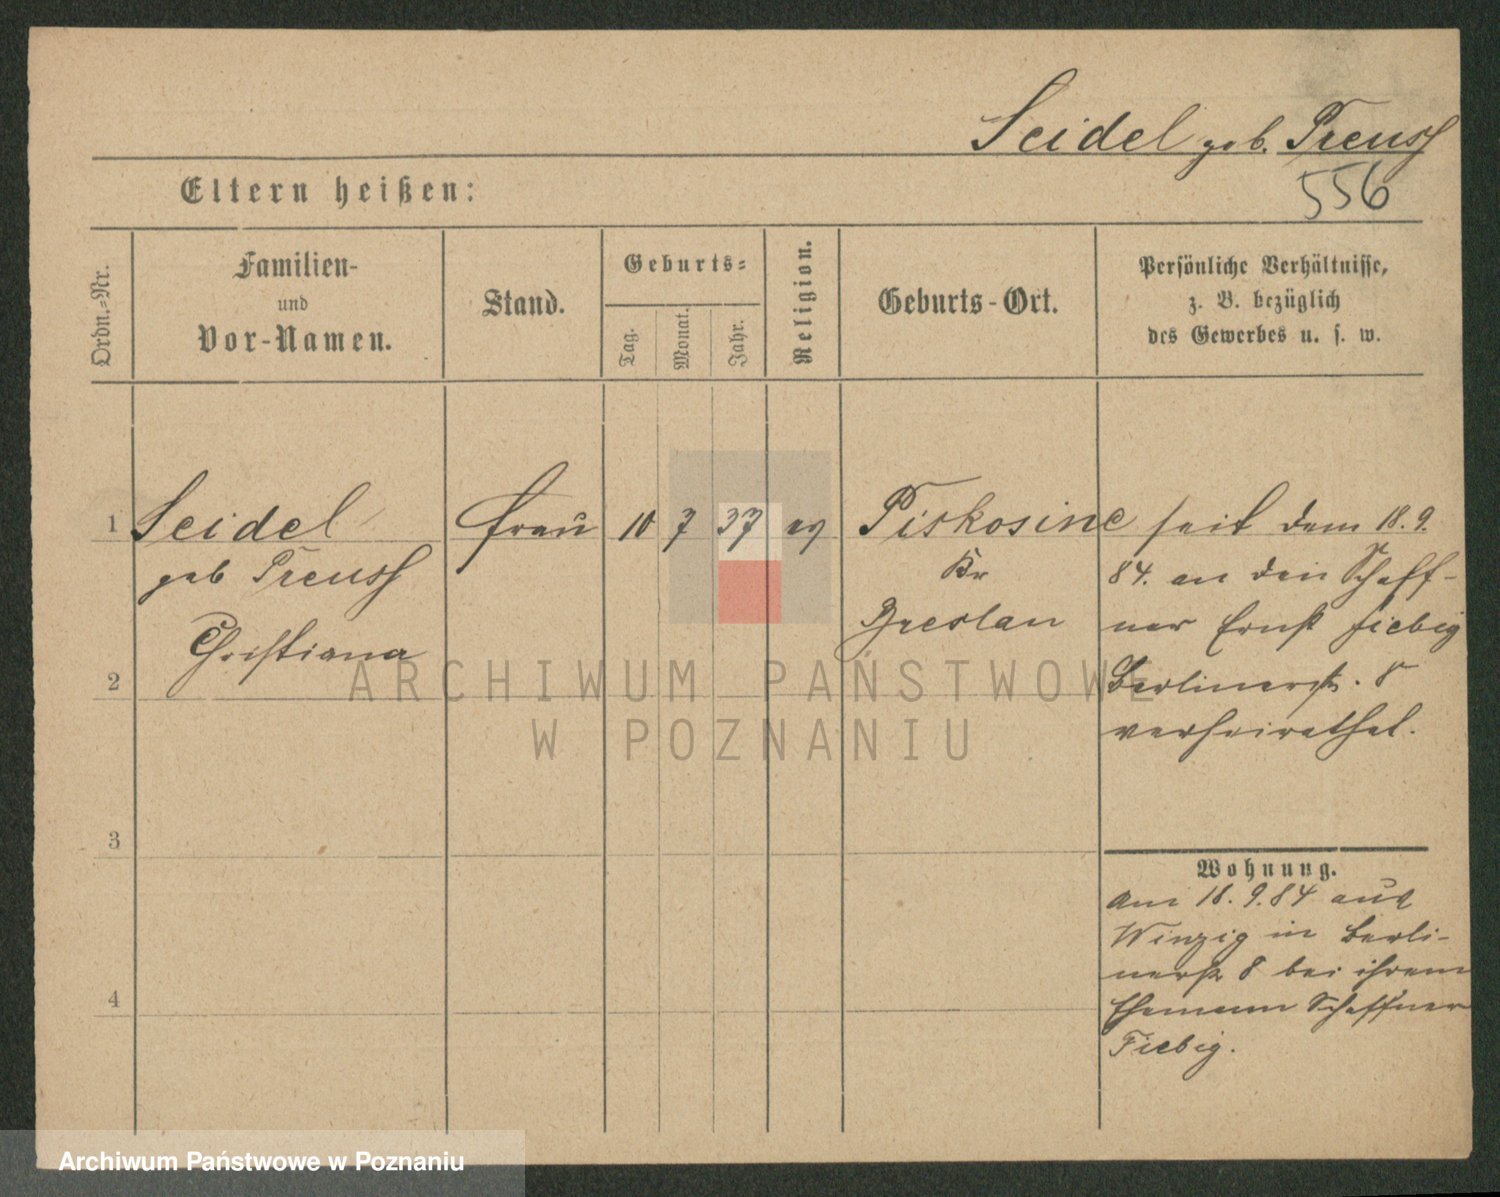 Seidel geb. Preuss
556
Eltern heißen:
Ordn.-Nr.
Familien-
und
Vor-Namen.
Stand.
Geburts-
Tag.
Monat.
Jahr.
Religion.
Geburts-Ort.
Persönliche Verhältnisse,
z. B. bezüglich
des Gewerbes u. s. w.
1 Seidel Frau 10 7 37 ev Piskosine seit dem 18. 9.
geb Preuss Kr 84. an den Schaff-
Christiana Breslau ner Ernst Fiebig
2 Berlinerstr. 8
verheirathet.
3
Wohnung.
Am 18. 9. 84 aus
Winzig in Berli-
nerstr 8 bei ihrem
Ehemann Schaffner
4
Fiebig.
ARCHIWUM PAŃSTWOWE
W POZNANIU
Archiwum Państwowe w Poznaniu